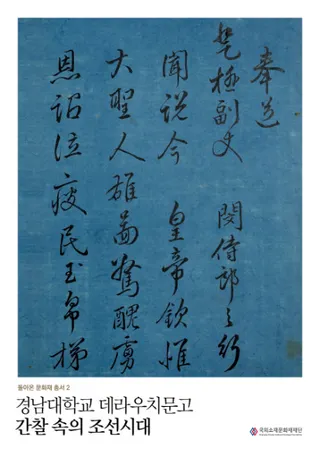 奉送
極副丈 閔侍郎之行
聞說今 皇帝欽惟
大聖人雄啚驚醜虜
恩詔泣疲民玉帛梯
돌아온 문화재 총서 2
경남대학교 데라우치문고
간찰 속의 조선시대
국외소재문화재재단